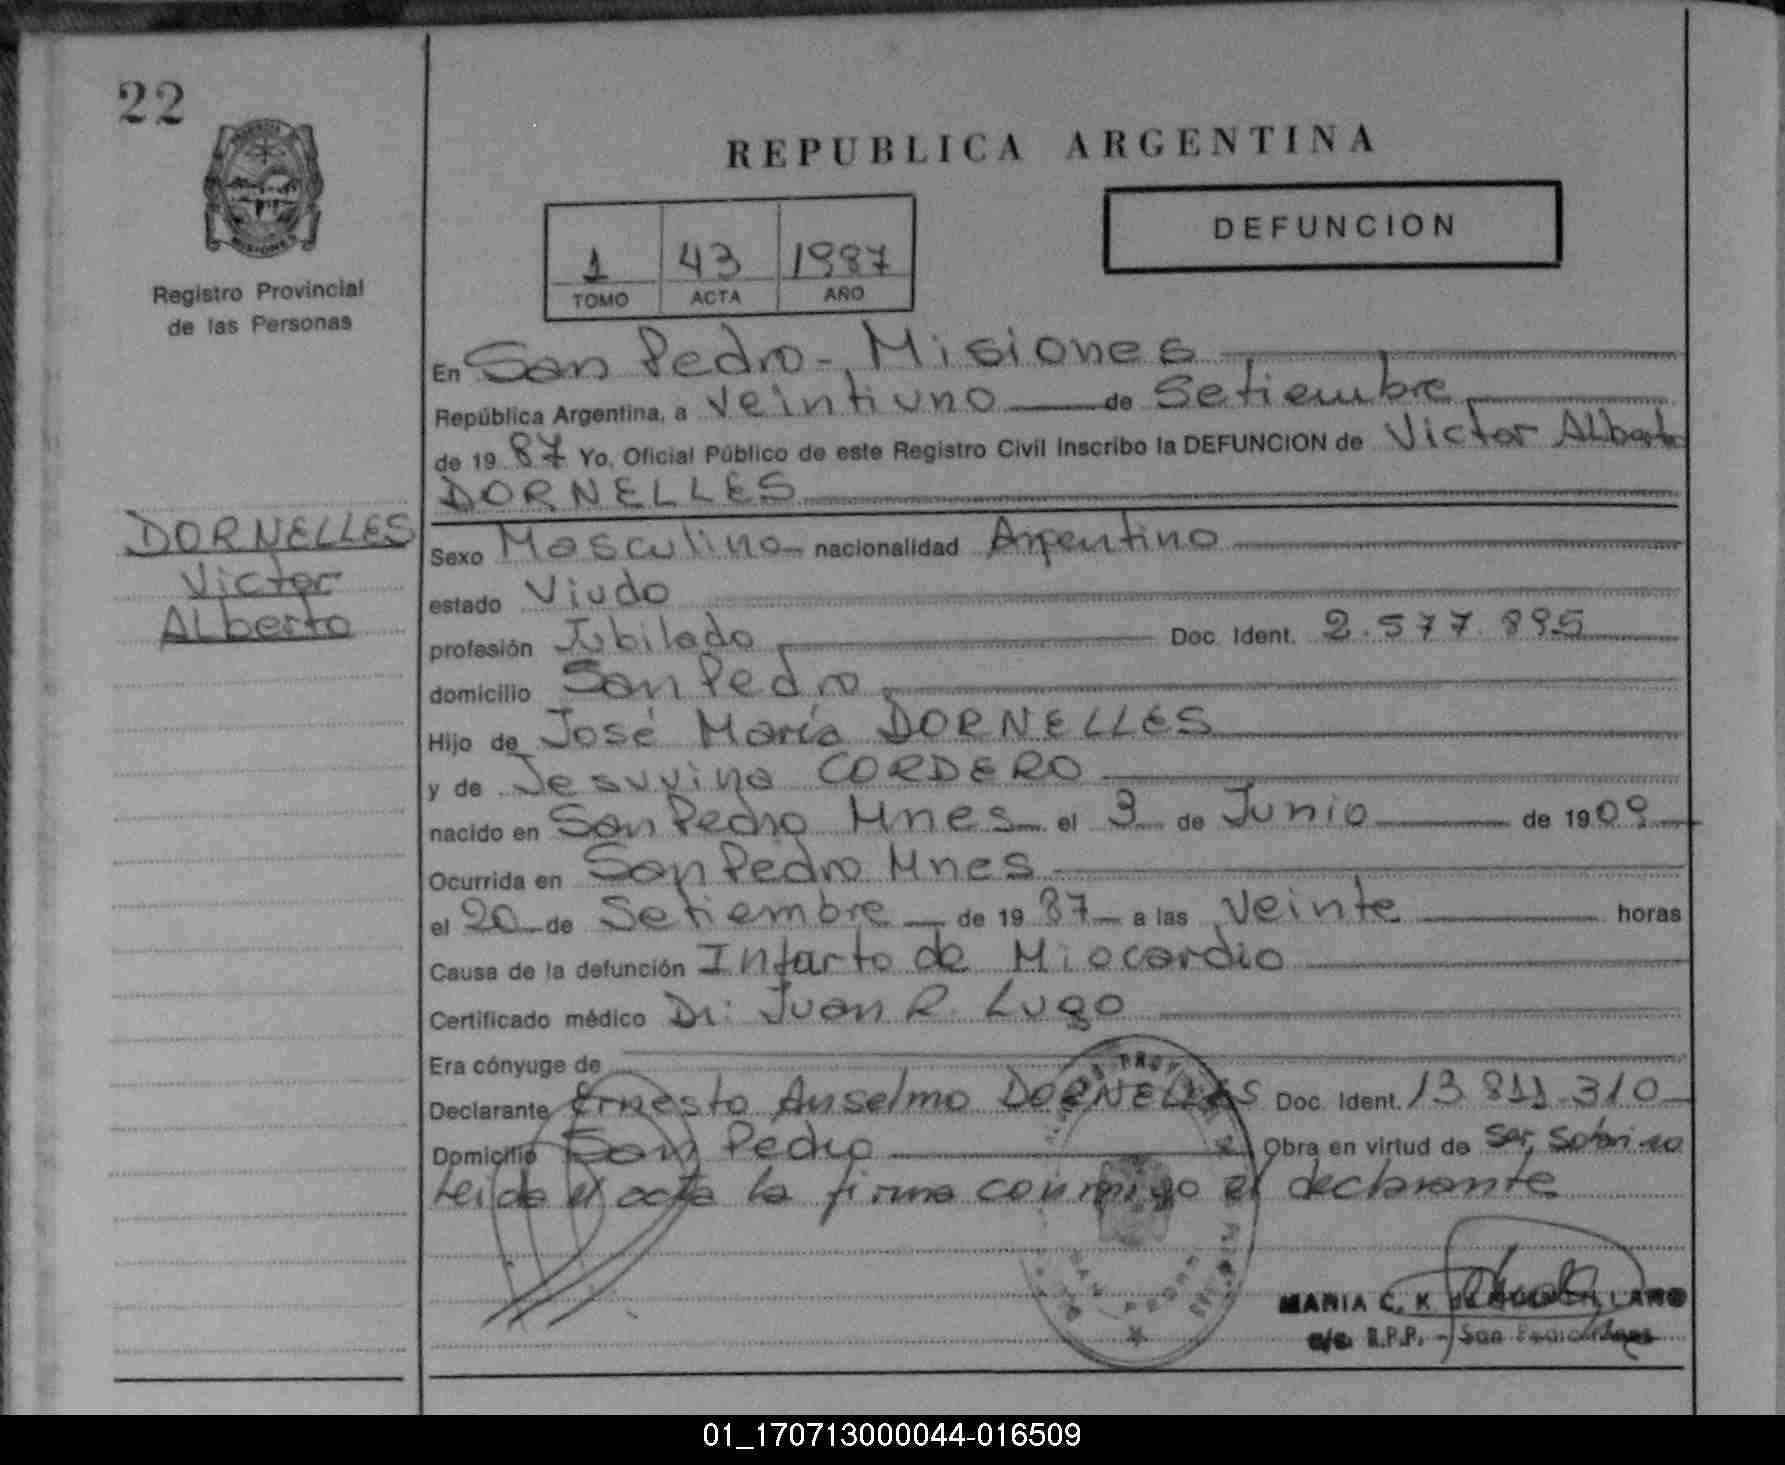 22
Registro Provincial
de las Personas
REPUBLICA ARGENTINA
DEFUNCION
1 43 1987
TOMO ACTA AÑO
En San Pedro - Misiones
República Argentina, a Veintiuno de Setiembre
de 19 87 Yo, Oficial Público de este Registro Civil Inscribo la DEFUNCION de Victor Alberto
DORNELLES
DORNELLES
Victor
Alberto
Sexo Masculino nacionalidad Argentino
estado Viudo
profesión Jubilado Doc. Ident. 2.577.895
domicilio San Pedro
Hijo de José María DORNELLES
y de Jesuvina CORDERO
nacido en San Pedro Mnes el 3 de Junio de 1909
Ocurrida en San Pedro Mnes
el 20 de Setiembre de 19 87 a las Veinte horas
Causa de la defunción Infarto de Miocardio
Certificado médico Dr: Juan R. Lugo
Era cónyuge de
Declarante Ernesto Anselmo DORNELLES Doc. Ident. 13 811.310
Domicilio San Pedro Obra en virtud de ser
Leida el acta la firma conmigo el declarante
SAN PEDRO
MARIA C. K. de
R.P.P. - San Pedro
01_170713000044-016509